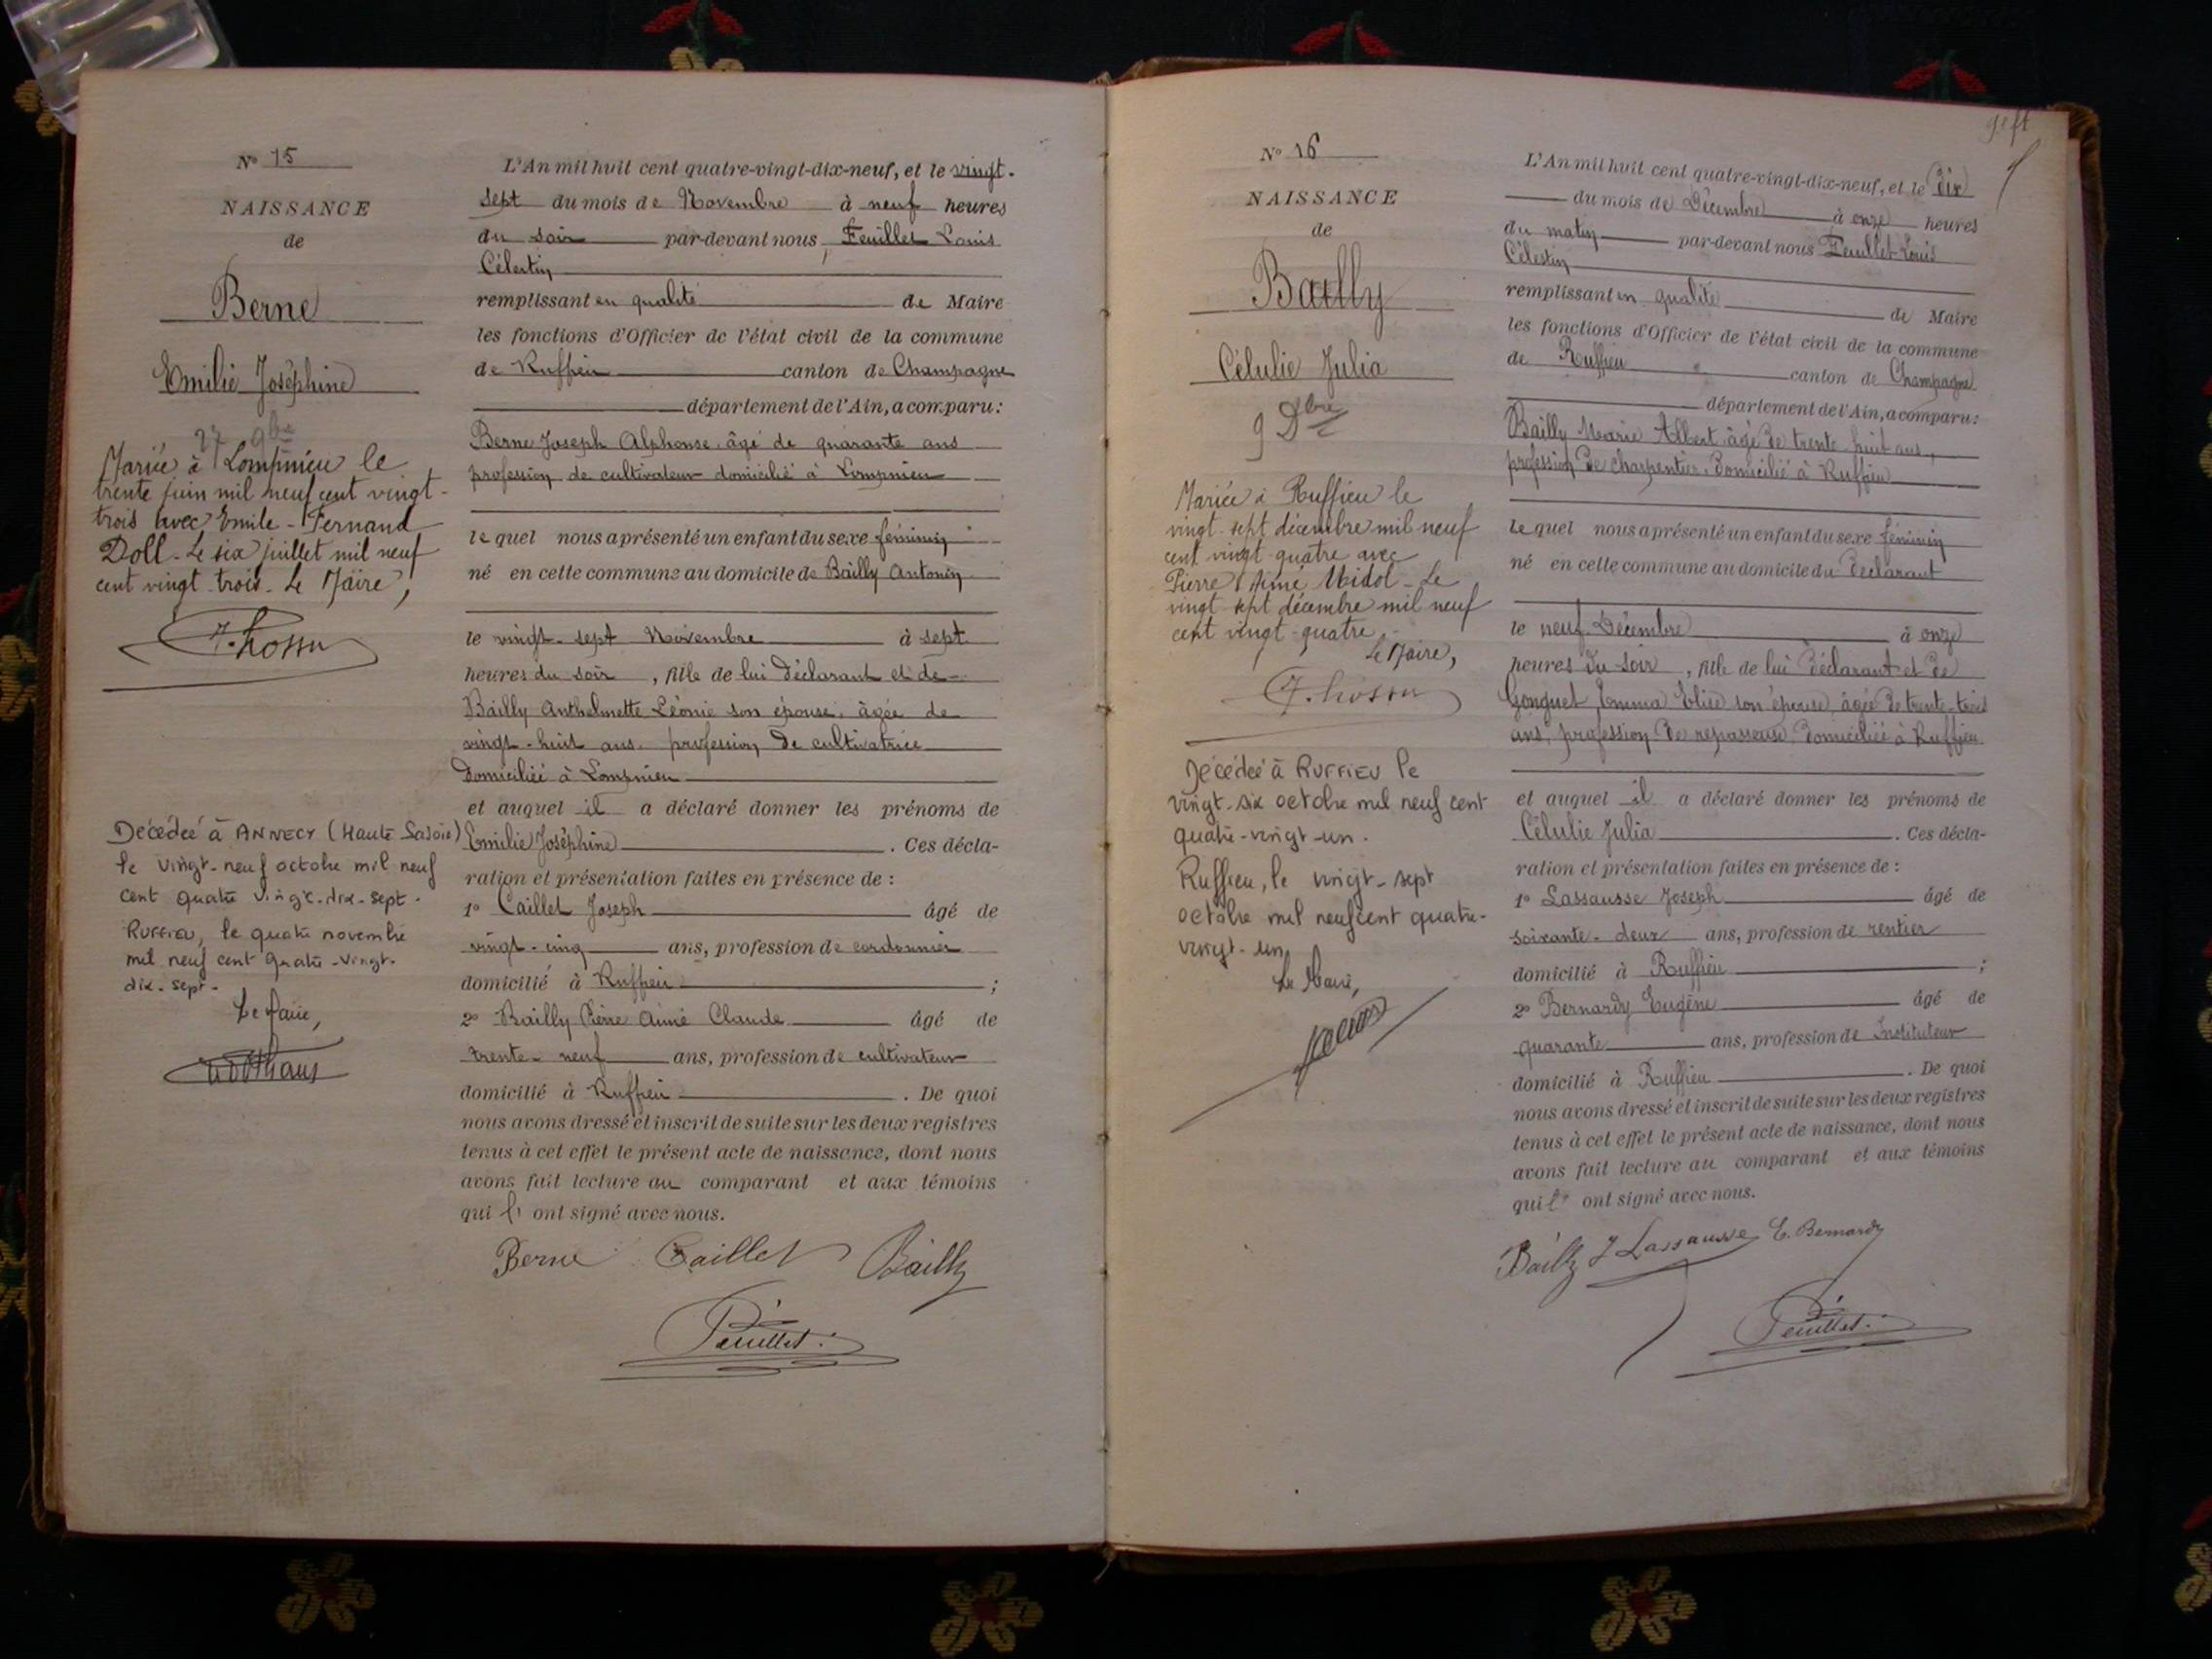 N° 15
NAISSANCE
de
Berne
Emilie Joséphine
27 9bre
Mariée à Lompnieu le
trente juin mil neuf cent vingt-
trois avec Emile-Fernand
Doll - Le six juillet mil neuf
cent vingt-trois - Le Maire,
Décédée à ANNECY (Haute Savoie)
le vingt-neuf octobre mil neuf
cent quatre vingt-dix-sept.
RUFFIEU, le quatre novembre
mil neuf cent quatre-vingt-
dix-sept-
Le Maire,
L'An mil huit cent quatre-vingt-dix-neuf, et le vingt-
sept du mois de Novembre à neuf heures
du soir par-devant nous, Feuillet Louis
Célestin
remplissant en qualité de Maire
les fonctions d'Officier de l'état civil de la commune
de Ruffieu canton de Champagne
département de l'Ain, a comparu:
Berne Joseph Alphonse, âgé de quarante ans
profession de cultivateur domicilié à Lompnieu
le quel nous a présenté un enfant du sexe féminin
né en cette commune au domicile de Bailly Antonin
le vingt-sept Novembre à sept
heures du soir, fille de lui déclarant et de
Bailly Anthelmette Léonie son épouse, âgée de
vingt-huit ans, profession de cultivatrice
domiciliée à Lompnieu
et auquel il a déclaré donner les prénoms de
Emilie Joséphine. Ces décla-
ration et présentation faites en présence de :
1° Caillet Joseph âgé de
vingt-cinq ans, profession de cordonnier
domicilié à Ruffieu ;
2° Bailly Pierre Aimé Claude âgé de
trente-neuf ans, profession de cultivateur
domicilié à Ruffieu. De quoi
nous avons dressé et inscrit de suite sur les deux registres
tenus à cet effet le présent acte de naissance, dont nous
avons fait lecture au comparant et aux témoins
qui ont signé avec nous.
Berne Caillet Bailly
Feuillet
N° 16
NAISSANCE
de
Bailly
Célulie Julia
9 Dbre
Mariée à Ruffieu le
vingt-sept décembre mil neuf
cent vingt-quatre avec
Pierre Aimé Midol - Le
vingt-sept décembre mil neuf
cent vingt-quatre -
Le Maire,
Décédée à RUFFIEU le
vingt-six octobre mil neuf cent
quatre-vingt-un.
Ruffieu, le vingt-sept
octobre mil neuf cent quatre-
vingt-un
Le Maire,
L'An mil huit cent quatre-vingt-dix-neuf, et le dix
du mois de Décembre à onze heures
du matin par-devant nous Feuillet Louis
Célestin
remplissant en qualité de Maire
les fonctions d'Officier de l'état civil de la commune
de Ruffieu canton de Champagne
département de l'Ain, a comparu:
Bailly Marie Albert, âgé de trente huit ans,
profession de charpentier, domicilié à Ruffieu
le quel nous a présenté un enfant du sexe féminin
né en cette commune au domicile du déclarant
le neuf Décembre à onze
heures du soir, fille de lui déclarant et de
Gonguet Emma Elise son épouse, âgée de trente-trois
ans, profession de repasseuse, domiciliée à Ruffieu
et auquel il a déclaré donner les prénoms de
Célulie Julia. Ces décla-
ration et présentation faites en présence de :
1° Lassausse Joseph âgé de
soixante-deux ans, profession de rentier
domicilié à Ruffieu ;
2° Bernardy Eugène âgé de
quarante ans, profession de Instituteur
domicilié à Ruffieu. De quoi
nous avons dressé et inscrit de suite sur les deux registres
tenus à cet effet le présent acte de naissance, dont nous
avons fait lecture au comparant et aux témoins
qui ont signé avec nous.
Bailly J Lassausse E. Bernardy
Feuillet